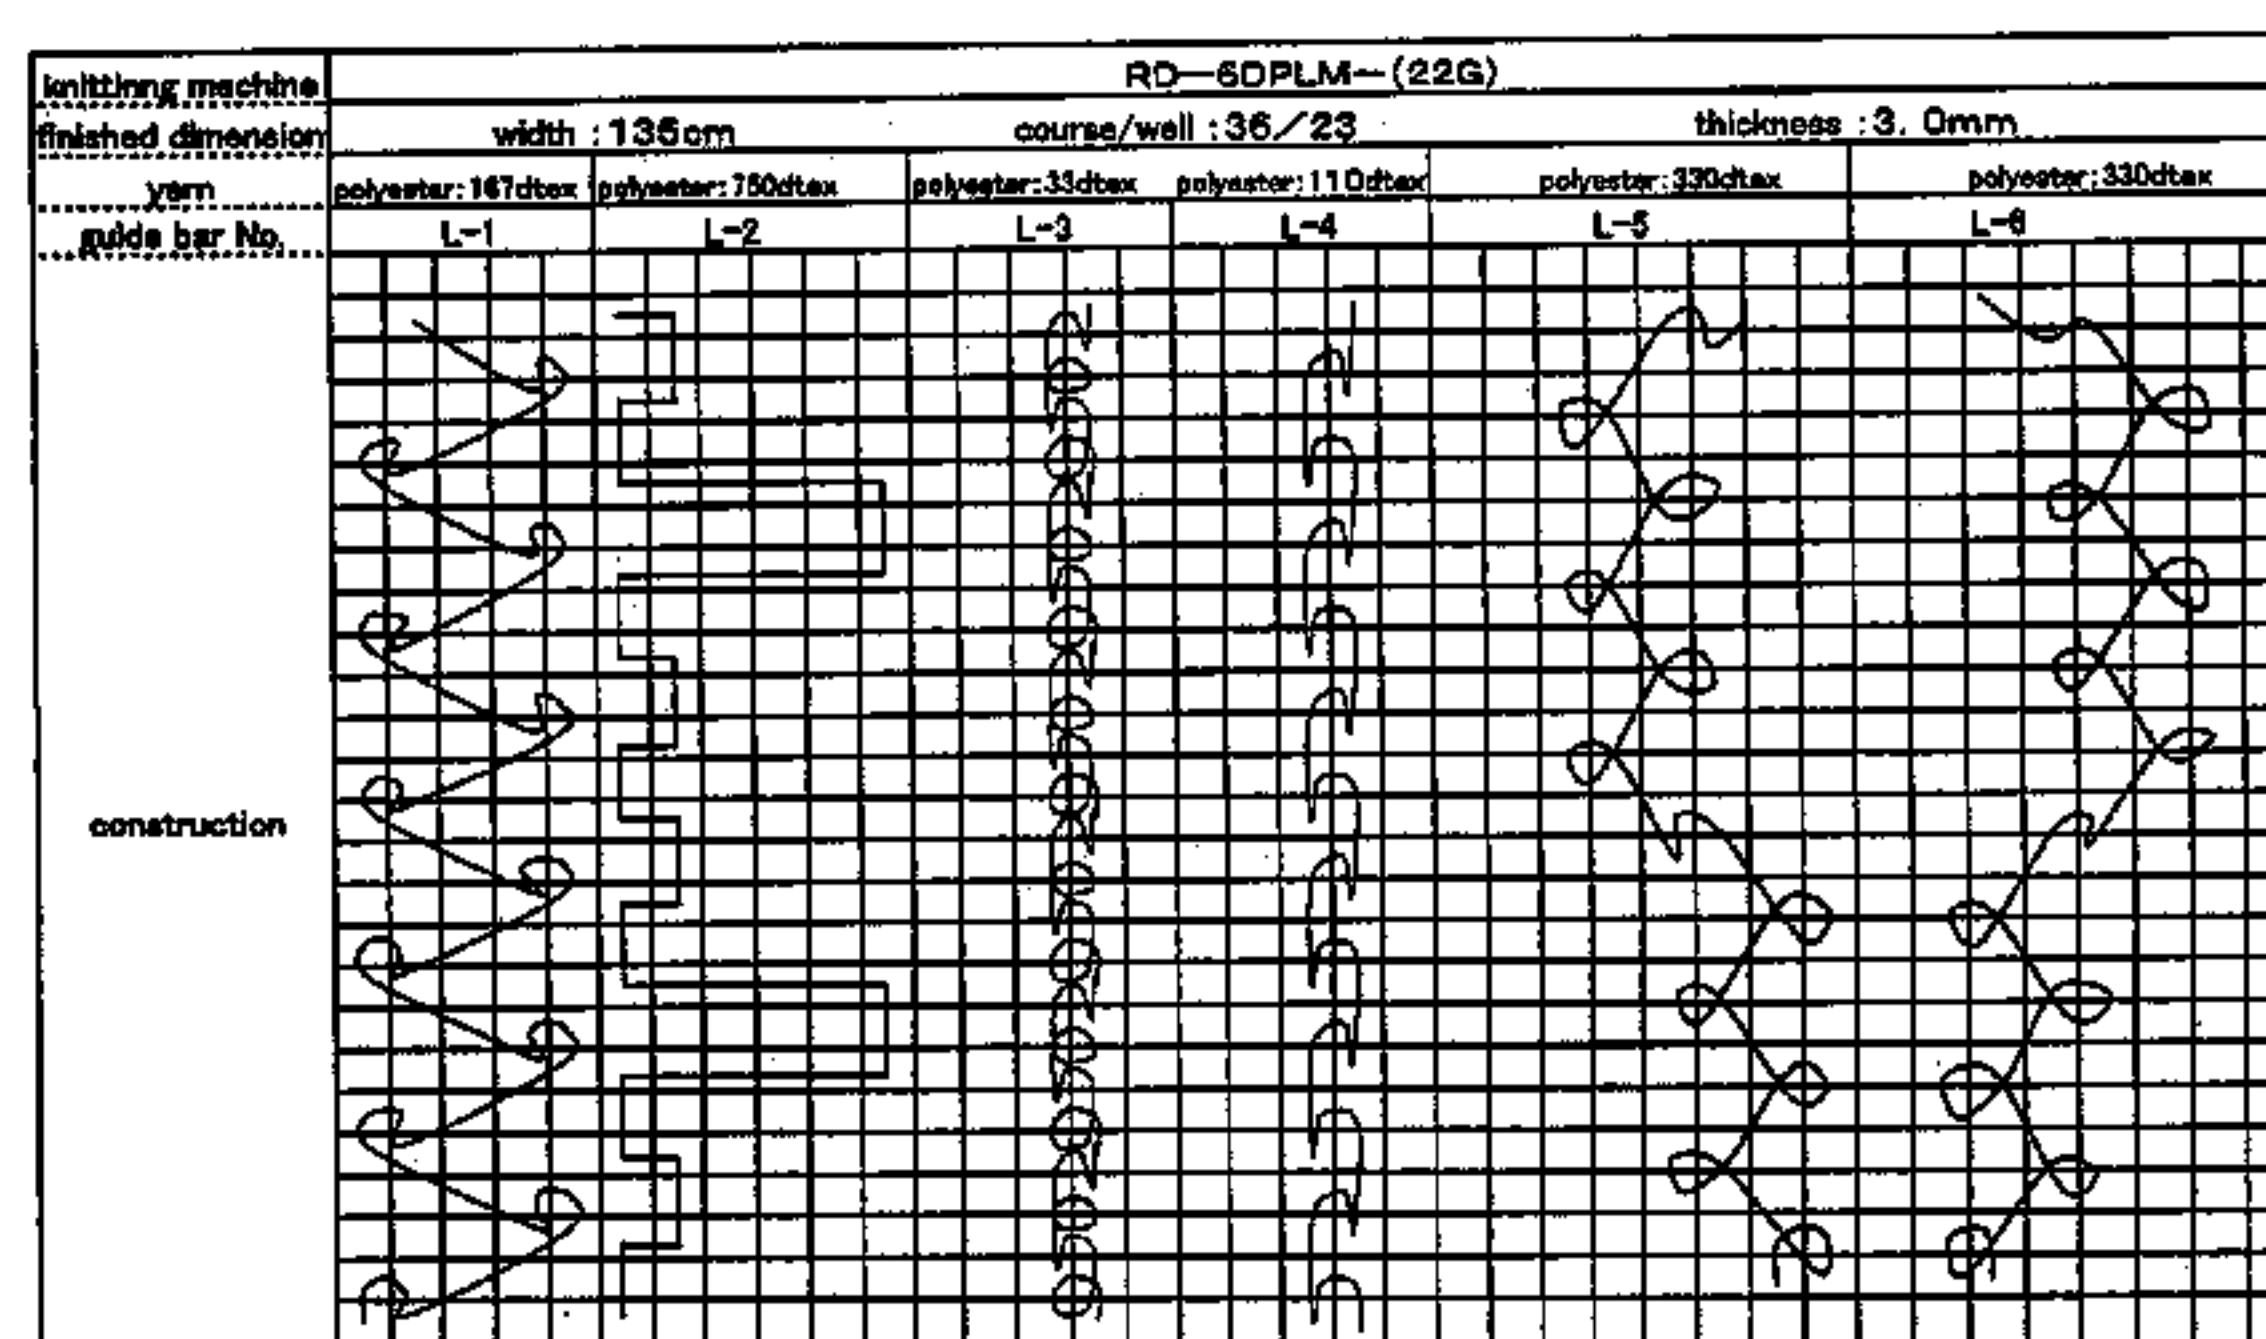 knittinng machine RD-6DPLM-(22G)
finished dimension width : 135cm course/well : 36/23 thickness : 3. 0mm
yarn polyester:167dtex polyester:750dtex polyester:33dtex polyester:110dtex polyester:330dtex polyester:330dtex
guide bar No. L-1 L-2 L-3 L-4 L-5 L-6
construction